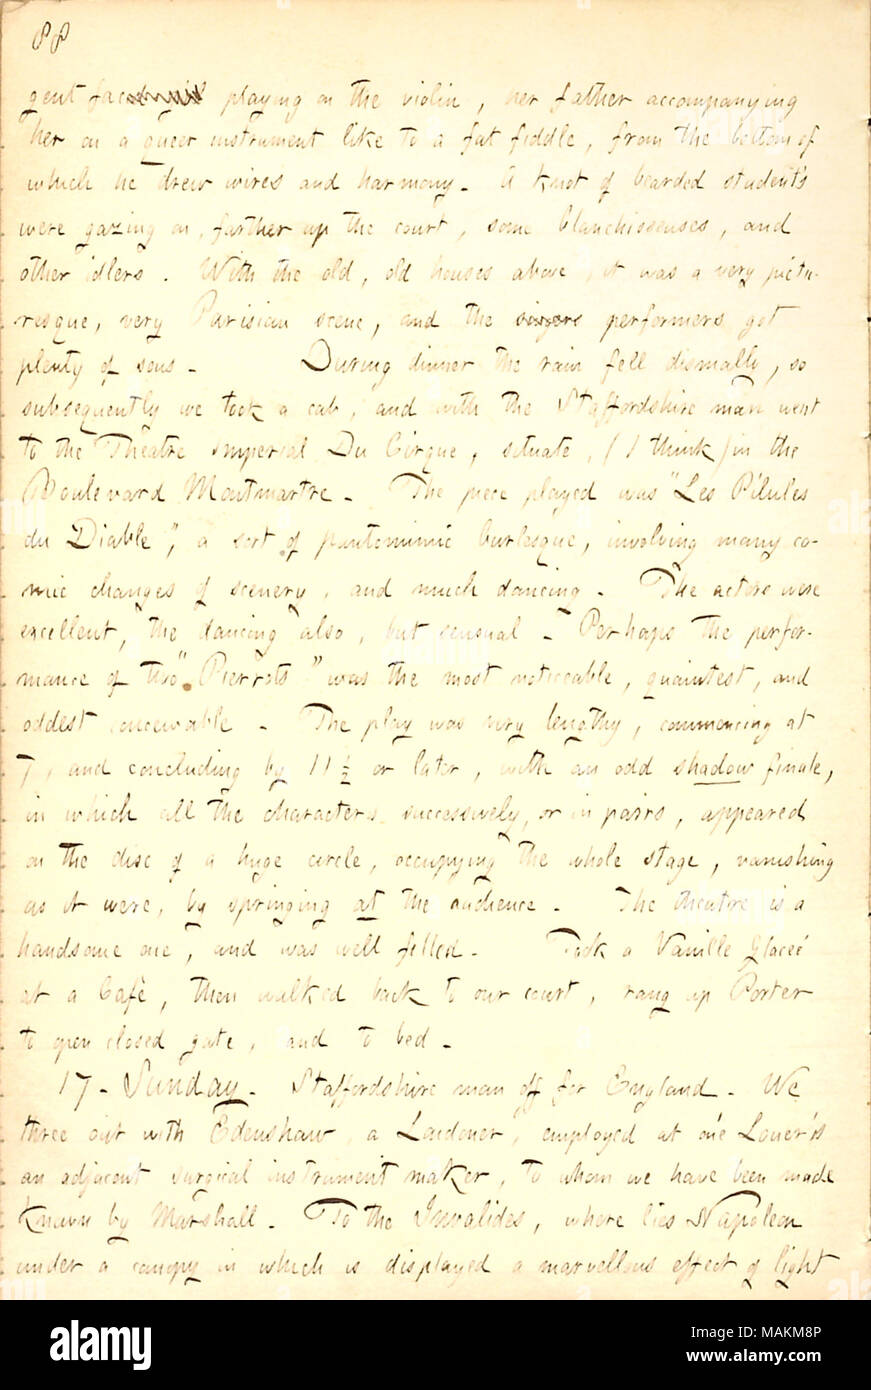 88
gent face playing on the violin, her father accompanying
her on a queer instrument like to a fat fiddle, from the bottom of
which he drew wires and harmony. A knot of bearded students
were gazing on, farther up the court, some blanchisseuses, and
other idlers. With the old, old houses above, it was a very pictu-
resque, very Parisian scene, and the singers performers got
plenty of sous. During dinner the rain fell dismally, so
subsequently we took a cab, and with the Staffordshire man went
to the Theatre Imperial Du Cirque, situate, (I think) in the
Boulevard Montmartre. The piece played was "Les Pilules
du Diable", a sort of pantomimic burlesque, involving many co-
mic changes of scenery, and much dancing. The actors were
excellent, the dancing also, but sensual. Perhaps the perfor-
mance of two "Pierrots" was the most noticeable, quaintest, and
oddest conceivable. The play was very lengthy, commencing at
7, and concluding by 11 ½ or later, with an odd shadow finale,
in which all the characters, successively, or in pairs, appeared
on the disc of a huge circle, occupying the whole stage, vanishing
as it were, by springing at the audience. The theatre is a
handsome one, and was well filled. Took a Vanille Glacée
at a Café, then walked back to our court, rang up Porter
to open closed gate, and to bed.
17. Sunday. Staffordshire man off for England. We
three out with Edenshaw, a Londoner, employed at one Louer's
an adjacent surgical instrument maker, to whom we have been made
known by Marshall. To the Invalides, where lies Napoleon
under a canopy in which is displayed a marvellous effect of light
alamy
Image ID: MAKM8P
www.alamy.com